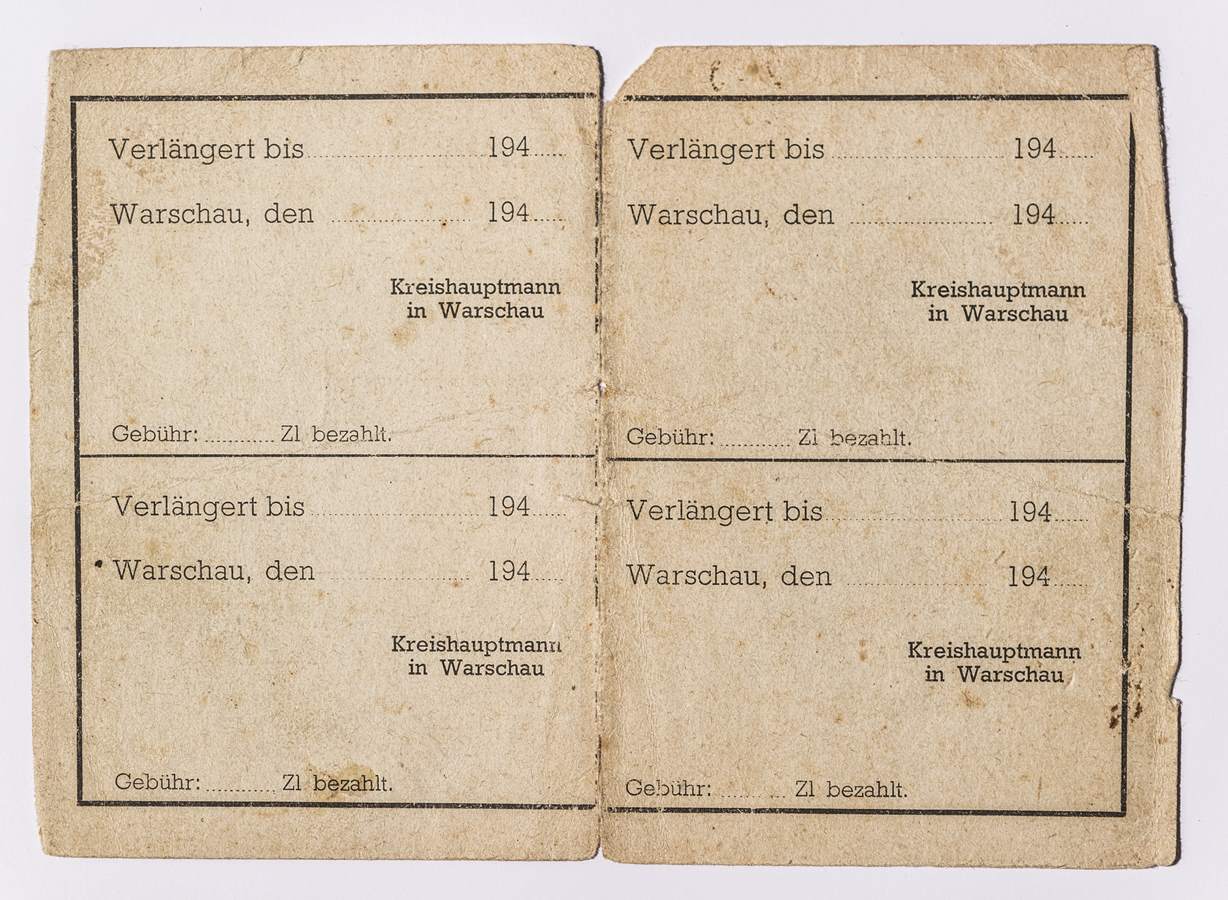 Verlängert bis 194
Warschau, den 194
Kreishauptmann
in Warschau
Gebühr: Zl bezahlt.
Verlängert bis 194
Warschau, den 194
Kreishauptmann
in Warschau
Gebühr: Zl bezahlt.
Verlängert bis 194
Warschau, den 194
Kreishauptmann
in Warschau
Gebühr: Zl bezahlt.
Verlängert bis 194
Warschau, den 194
Kreishauptmann
in Warschau
Gebühr: Zl bezahlt.